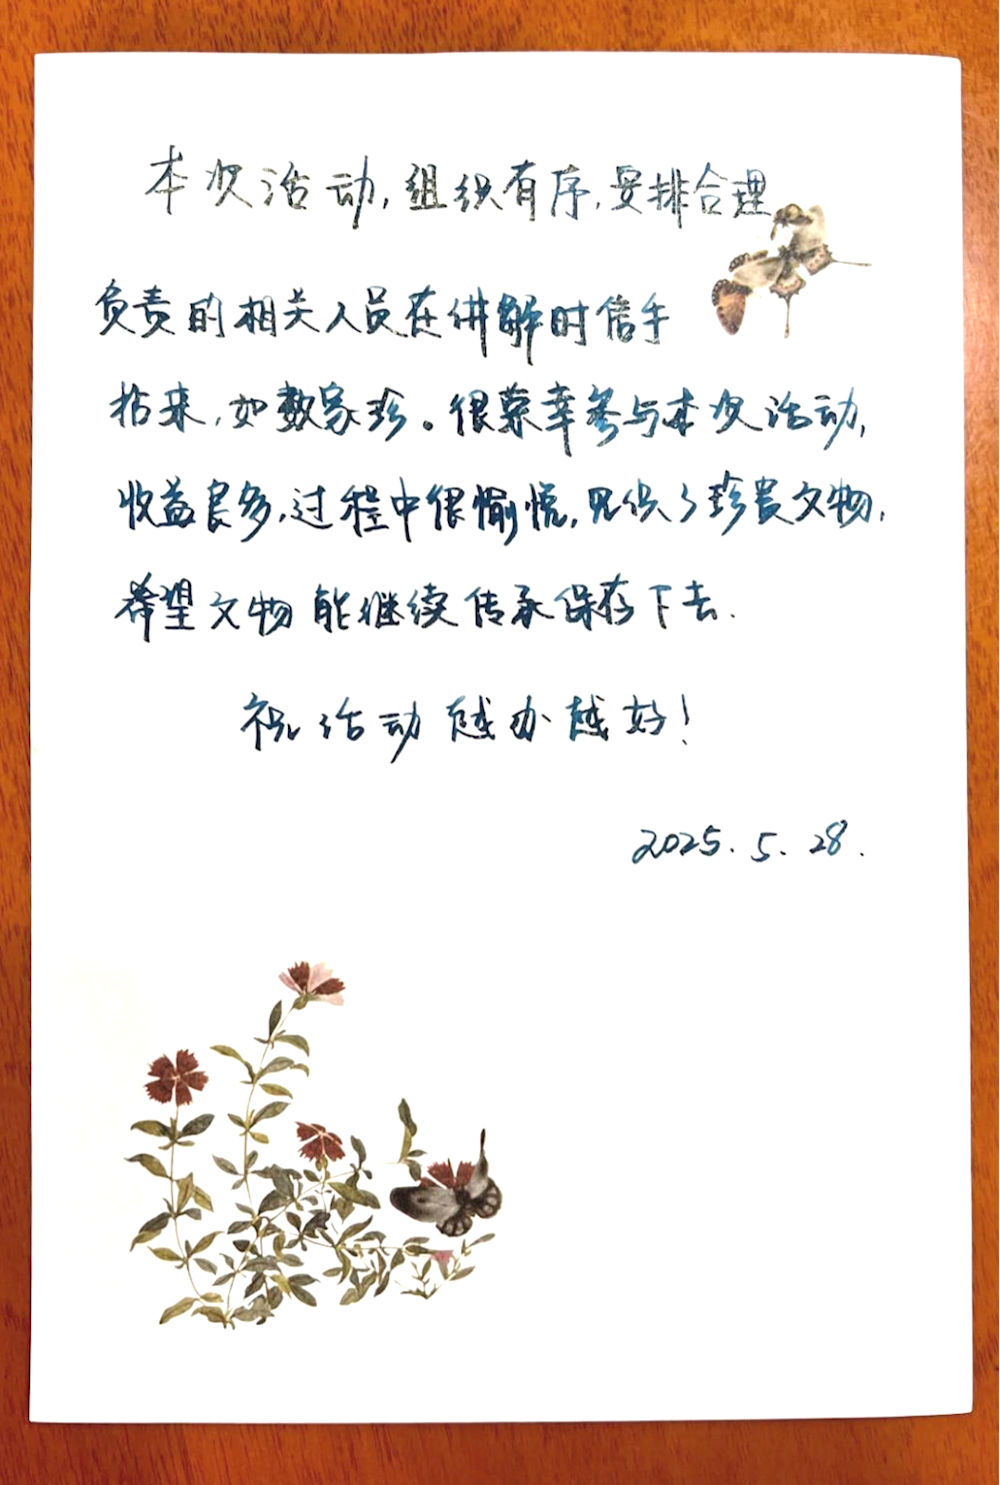 本次活动,组织有序,安排合理
负责的相关人员在讲解时信手
拈来,如数家珍。很荣幸参与本次活动,
收益良多,过程中很愉悦,见识了珍贵文物,
希望文物能继续传承保存下去.
祝活动越办越好!
2025.5.28.